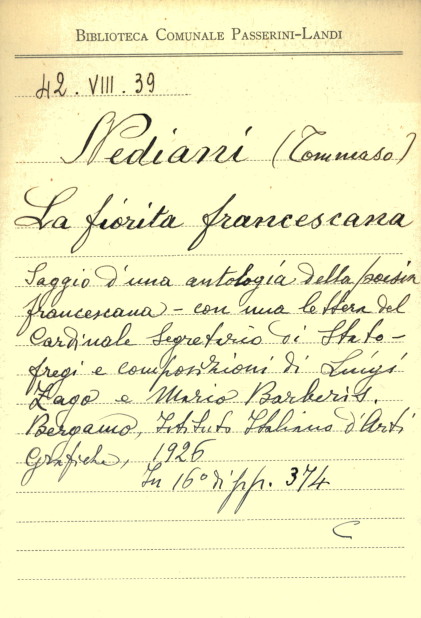 BIBLIOTECA COMUNALE PASSERINI-LANDI
42. VIII. 39
Nediani (Tommaso)
La fiorita francescana
Saggio d'una antologia della poesia
francescana - con una lettera del
Cardinale Segretario di Stato -
fregi e composizioni di Luigi
Zago e Mario Barberis.
Bergamo, Istituto Italiano d'Arti
Grafiche, 1926
In 16° di pp. 374
C